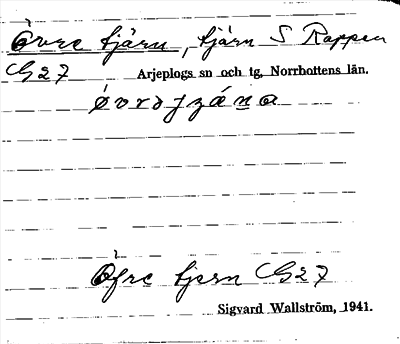 Övre tjärn, tjärn S Rappen
G27 Arjeplogs sn och tg, Norrbottens län.
Öfre tjern G27
Sigvard Wallström, 1941.